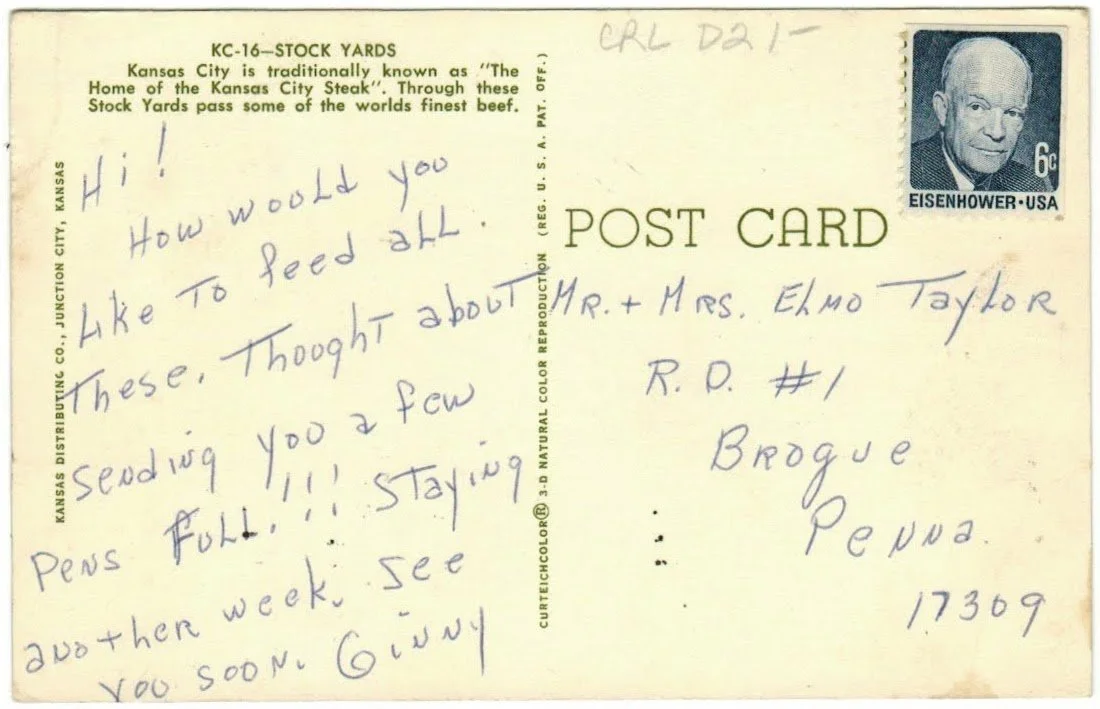 CRL D21-
KC-16—STOCK YARDS
Kansas City is traditionally known as "The
Home of the Kansas City Steak". Through these
Stock Yards pass some of the worlds finest beef.
Hi!
How would you
Like To feed all.
These. Thought about
sending you a few
Pens Full.!!! Staying
another week. See
you soon. Ginny
KANSAS DISTRIBUTING CO., JUNCTION CITY, KANSAS
CURTEICHCOLOR® 3-D NATURAL COLOR REPRODUCTION (REG. U. S. A. PAT. OFF.)
6c
EISENHOWER·USA
POST CARD
Mr. + Mrs. Elmo Taylor
R. D. #1
Brogue
Penna.
17309